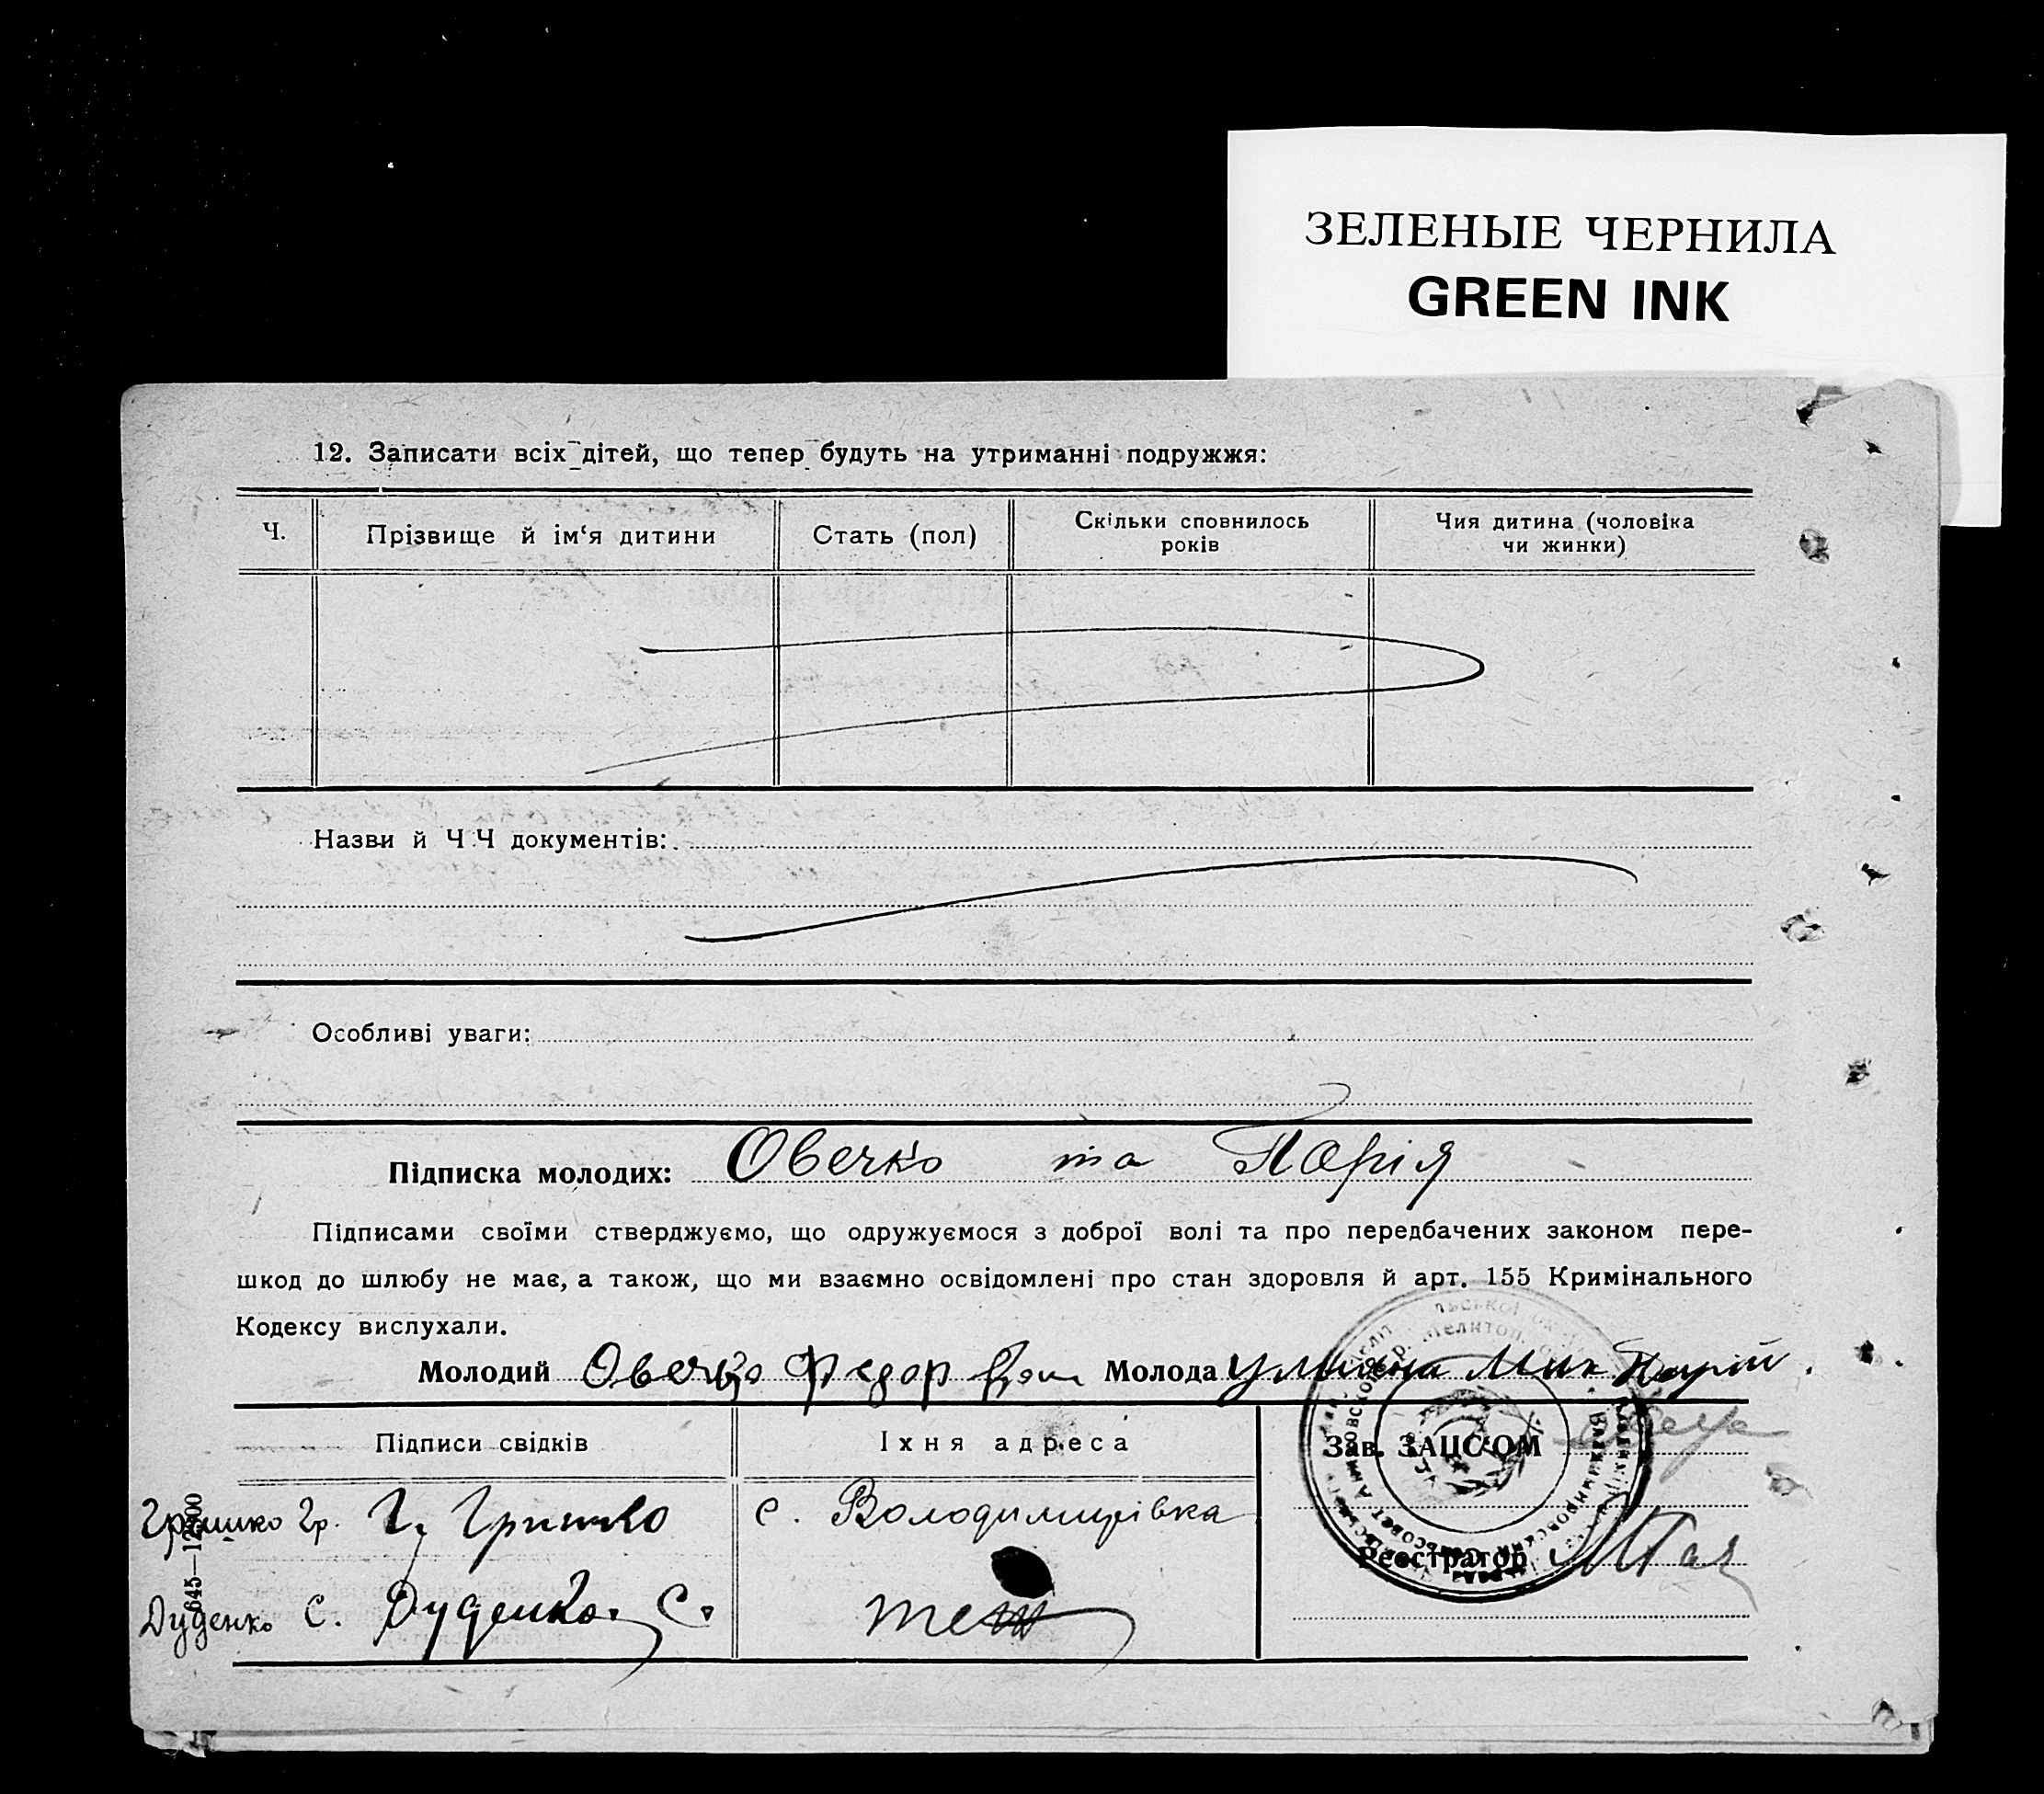 ЗЕЛЕНЫЕ ЧЕРНИЛА
GREEN INK
12. Записати всіх дітей, що тепер будуть на утриманні подружжя:
Ч.
Прізвище й ім‘я дитини
Стать (пол)
Скільки сповнилось
років
Чия дитина (чоловіка
чи жинки)
Назви й Ч Ч документів:
Особливі уваги:
Підписка молодих: Овечко та Парія
Підписами своїми стверджуємо, що одружуємося з доброї волі та про передбачених законом пере-
шкод до шлюбу не має, а також, що ми взаємно освідомлені про стан здоровля й арт. 155 Кримінального
Кодексу вислухали.
Молодий Овечко Федор Молода Уляна Мик Парій.
Підписи свідків
Їхня адреса
Зав. ЗАЦС‘ОМ
Гришко Гр. Г. Гришко
с. Володимирівка
Реєстратор
Дуденко С. Дуденко С.
теж
645—1200